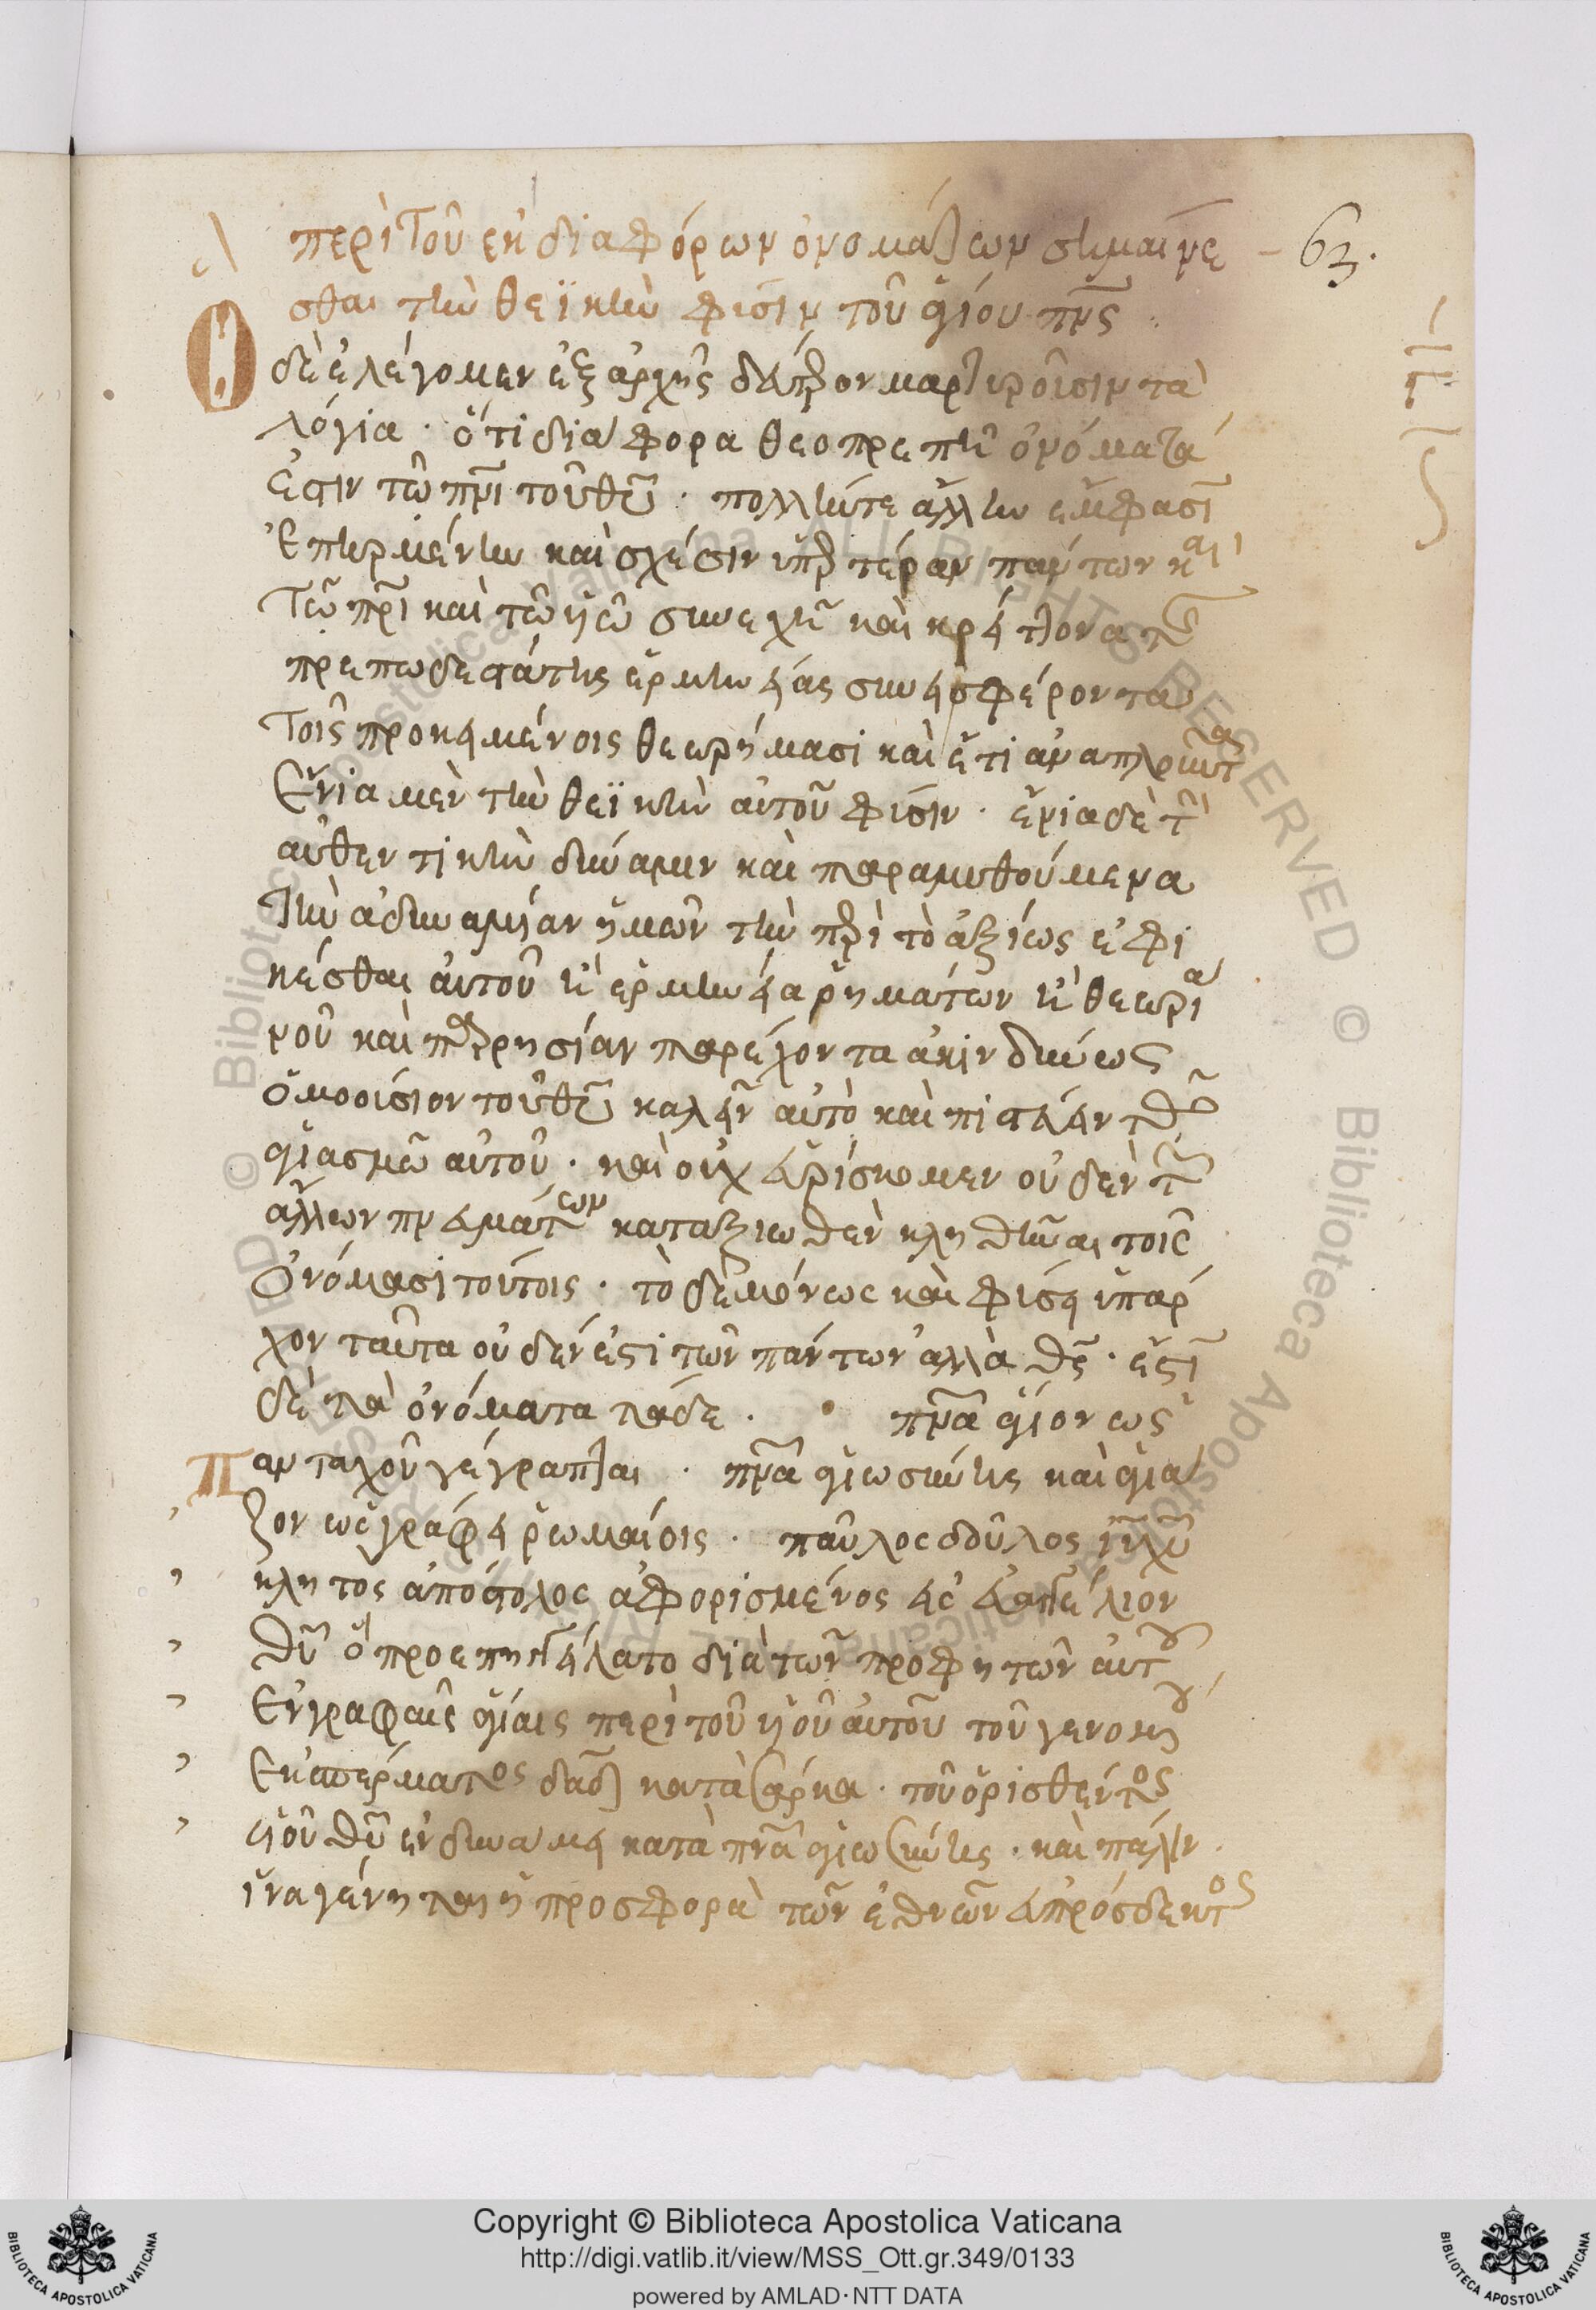 περὶ τοῦ ἐκ διαφόρων ὀνομάτων σημαίνε
63.
σθαι τὴν θεϊκὴν φύσιν τοῦ ἁγίου πν̅ς
Ὃ δὲ ἐλέγομεν ἐξ ἀρχῆς δεύτερον μαρτυροῦσιν τὰ
λόγια · ὅτι διάφορα θεοπρεπῆ ὀνόματά
ἐστιν τῶ πν̅ι τοῦ θυ̅ · πολλήν τε ἄλλην ἔμφασιν
ἐπηρμένην καὶ σχέσιν ὑπερτέραν πάντων καὶ
τῶ πρ̅ι καὶ τῶ υἱῶ συνεχῆ καὶ κρείττονα τῆς
πρεπωδεστάτης ἑρμηνείας συνεισφέροντα
τοῖς προκειμένοις θεωρήμασι καὶ ἔτι ἀναπληροῦντα
ἔνια μὲν τὴν θεϊκὴν αὐτοῦ φύσιν · ἔνια δὲ τὴν
αὐθεντικὴν δύναμιν καὶ παραμυθούμενα
τὴν ἀδυναμίαν ἡμῶν τὴν περὶ τὸ ἀξίως ἐφι
κέσθαι αὐτοῦ ἢ ἑρμηνεία ῥημάτων ἢ θεωρία
νοῦ καὶ παρρησίαν παρέχοντα ἀκινδύνως
ὁμοούσιον τοῦ θυ̅ καλεῖν αὐτὸ καὶ πιστεύειν τῶ
ἁγιασμῶ αὐτοῦ · καὶ οὐχ εὑρίσκομεν οὐδὲν τῶν
ἄλλων πνευμάτων καταξιωθὲν κληθῆναι τοῖς
ὀνόμασι τούτοις · τὸ δὲ μόνως καὶ φύσει ὑπάρ
χον ταῦτα οὐδέν ἐστι τῶν πάντων ἀλλὰ θς̅ · ἔστιν
δὲ τὰ ὀνόματα τάδε · πν̅α ἅγιον ὡς
πανταχοῦ γέγραπται · πν̅α ἁγιωσύνης καὶ ἁγιά
ζον ὡς γράφει ῥωμαίοις · παῦλος δοῦλος ιυ̅ χυ̅
κλητὸς ἀπόστολος ἀφορισμένος εἰς εὐαγγέλιον
θυ̅ ὃ προεπηγγείλατο διὰ τῶν προφητῶν αὐτοῦ
ἐν γραφαῖς ἁγίαις περὶ τοῦ υἱοῦ αὐτοῦ τοῦ γενομένου
ἐκ σπέρματος δαδ̅ κατὰ σάρκα · τοῦ ὁρισθέντος
υἱοῦ θυ̅ ἐν δυνάμει κατὰ πν̅α ἁγιωσύνης · καὶ πάλιν
ἵνα γένηται ἡ προσφορὰ τῶν ἐθνῶν εὐπρόσδεκτος
Copyright © Biblioteca Apostolica Vaticana
http://digi.vatlib.it/view/MSS_Ott.gr.349/0133
powered by AMLAD·NTT DATA
BIBLIOTECA APOSTOLICA VATICANA
BIBLIOTECA APOSTOLICA VATICANA